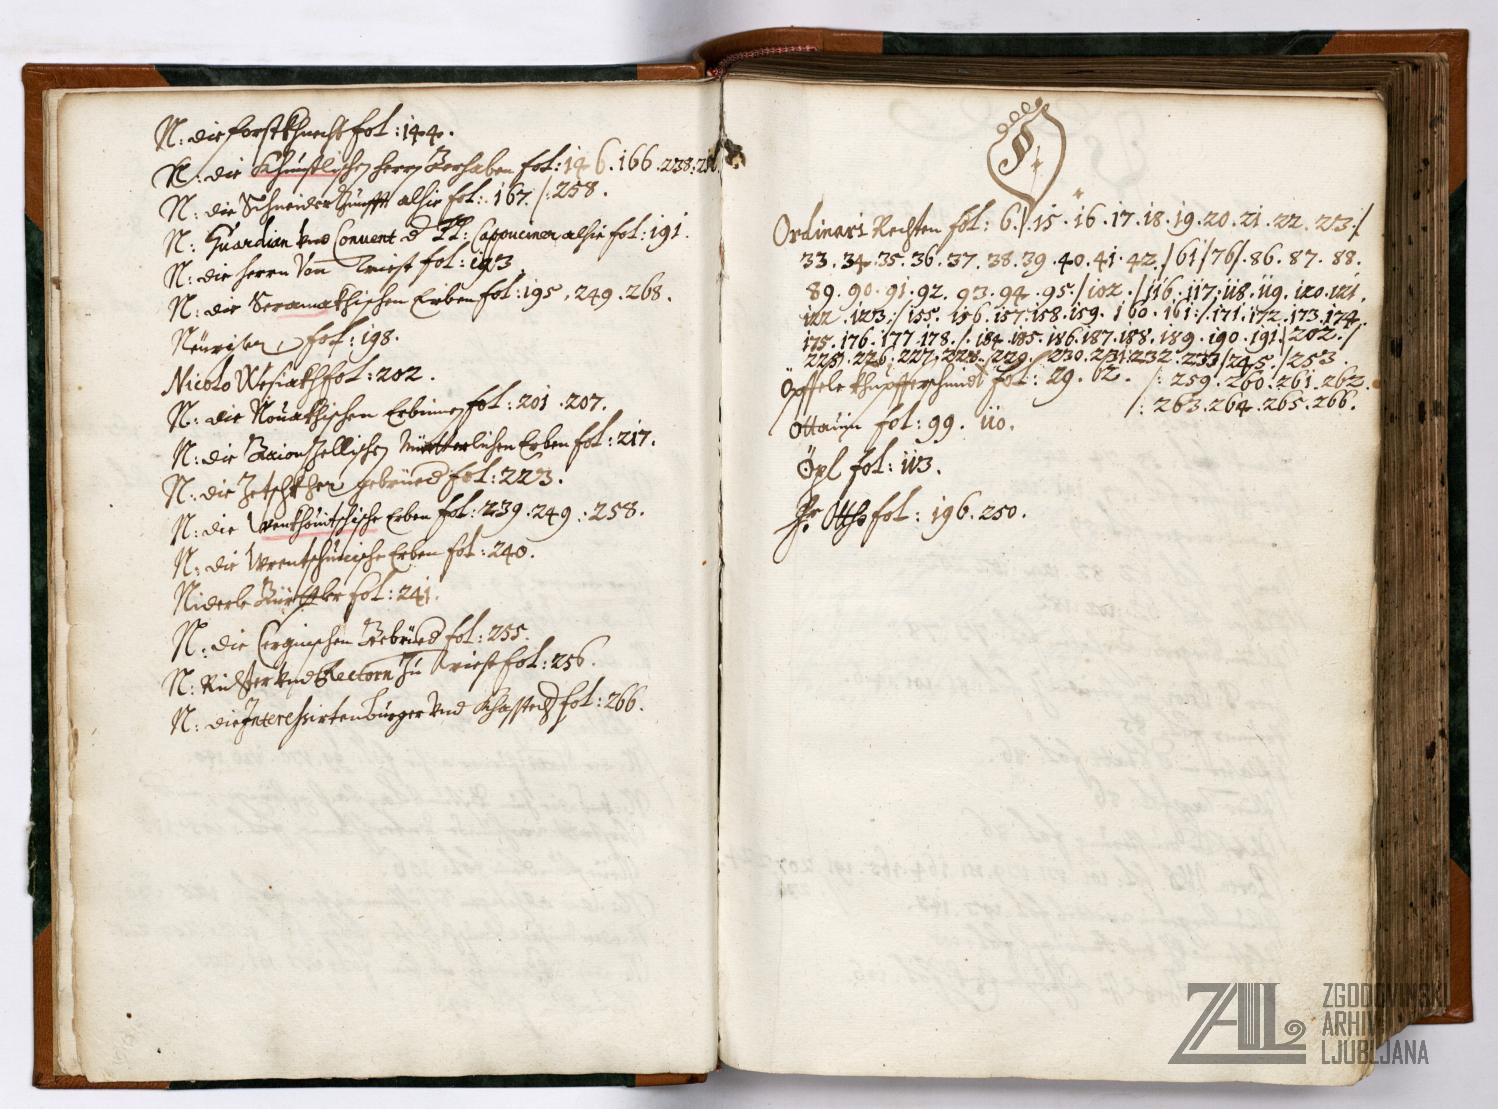 N: die forstkhnecht fol: 144.
N: die Khünstlichen herrn Gerhaben fol: 146. 166. 238: 251.
N: die Schneider Zunfft alhie fol: 167 /: 258.
N: Guardian vnd Convent d PP: Capouciner alhie fol: 191.
N: die herrn Von Triest fol: 193
N: die Seramakhischen Erben fol: 195. 249. 268.
fol: 198.
Nicolo fol: 202.
N: die Nouakhischen Erbinnen fol: 201. 207.
N: die Müetterlichen Erben fol: 217.
N: die gebrüed fol: 223.
N: die Erben fol: 239. 249: 258.
N: die Wrentschurische Erben fol: 240.
Niderle Bürstler fol: 241.
N: die Cerginischen Gebrüed fol: 255.
N: Richter vnd Rectorn Zu Triest fol: 256.
N: die Interehsirten burger vnd fol: 266.
O
Ordinari Rechten fol: 6. /. 15. 16. 17. 18. 19. 20. 21. 22. 23 /
33. 34. 35. 36. 37. 38. 39. 40. 41. 42. / 61 / 76 /. 86. 87. 88.
89. 90. 91. 92. 93. 94. 95. / 102. / 116. 117. 118. 119. 120. 121.
122. 123. / 155. 156. 157. 158. 159. 160. 161: / 171. 172. 173. 174.
175. 176. 177. 178. /. 184. 185. 186. 187. 188. 189. 190. 191. / 202. /
225. 226. 227. 228. / 229. / 230. 231. 232. 233 / 245. / 253.
Öpffele khupfferschmidt fol: 29. 62. /: 259. 260. 261. 262.
/: 263. 264. 265. 266.
Ottauin fol: 99. 110.
Öpl fol: 113.
Otto fol: 196. 250.
ZAL
ZGODOVINSKI
ARHIV
LJUBLJANA